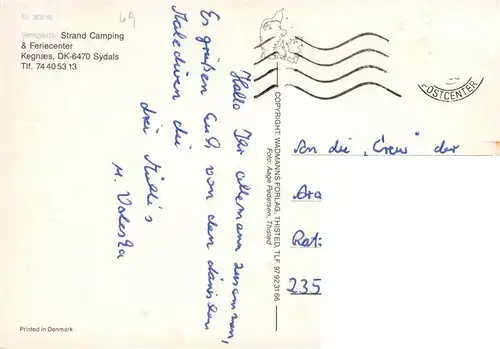 Strand Camping
& Feriecenter
Kegnæs, DK-6470 Sydals
Tlf. 74 40 53 13
Hallo Ihr allemann zusammen,
Es grüßen Euch von den dänischen
Malediven die
drei Mülli's
u. Valeska
COPYRIGHT: WADMANNS FORLAG, THISTED, TLF. 97 92 31 66
Foto: Aage Pedersen, Thisted
POSTCENTER
An die „Crew" der
Ara
Rat:
235
Printed in Denmark